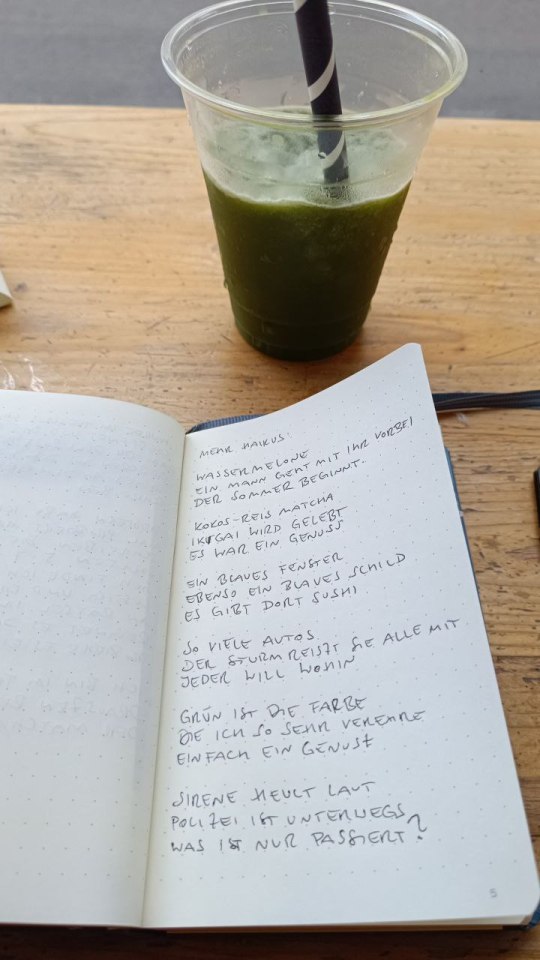 MEHR HAIKUS:
WASSERMELONE
EIN MANN GEHT MIT IHR VORBEI
DER SOMMER BEGINNT.
KOKOS-REIS MATCHA
IKIGAI WIRD GELEBT
ES WAR EIN GENUSS
EIN BLAUES FENSTER
EBENSO EIN BLAUES SCHILD
ES GIBT DORT SUSHI
SO VIELE AUTOS
DER STURM REISZT SIE ALLE MIT
JEDER WILL WOHIN
GRÜN IST DIE FARBE
DIE ICH SO SEHR VEREHRE
EINFACH EIN GENUSS
SIRENE HEULT LAUT
POLIZEI IST UNTERWEGS
WAS IST NUR PASSIERT?
5